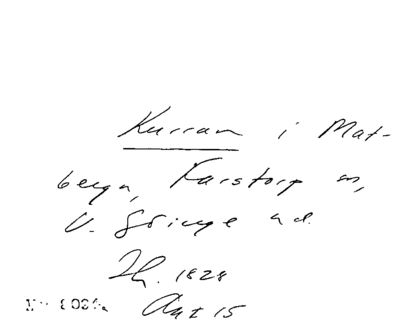 Kurran i Mat-
berga, Farstorp sn,
V. Göinge hd.
Th. 1828
Ant 15